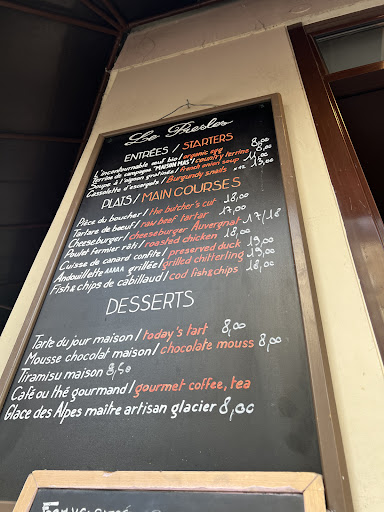 Le Presles
ENTRÉES / STARTERS
L'incontournable œuf bio / organic egg 8,00
Terrine de campagne "MAISON MAS" / country terrine 8,00
Soupe à l'oignon gratinée / French onion soup 11,00
Cassolette d'escargots / Burgundy snails x12 13,00
PLATS / MAIN COURSES
Pièce du boucher / the butcher's cut 18,00
Tartare de boeuf / raw beef tartar 17,00
Cheeseburger / cheeseburger Auvergnat 17/18
Poulet fermier rôti / roasted chicken 18,00
Cuisse de canard confite / preserved duck 19,00
Andouillette AAAAA grillée / grilled chitterling 19,00
Fish & chips de cabillaud / cod fish & chips 18,00
DESSERTS
Tarte du jour maison / today's tart 8,00
Mousse chocolat maison / chocolate mouss 8,00
Tiramisu maison 8,50
Café ou thé gourmand / gourmet coffee, tea
Glace des Alpes maitre artisan glacier 8,00